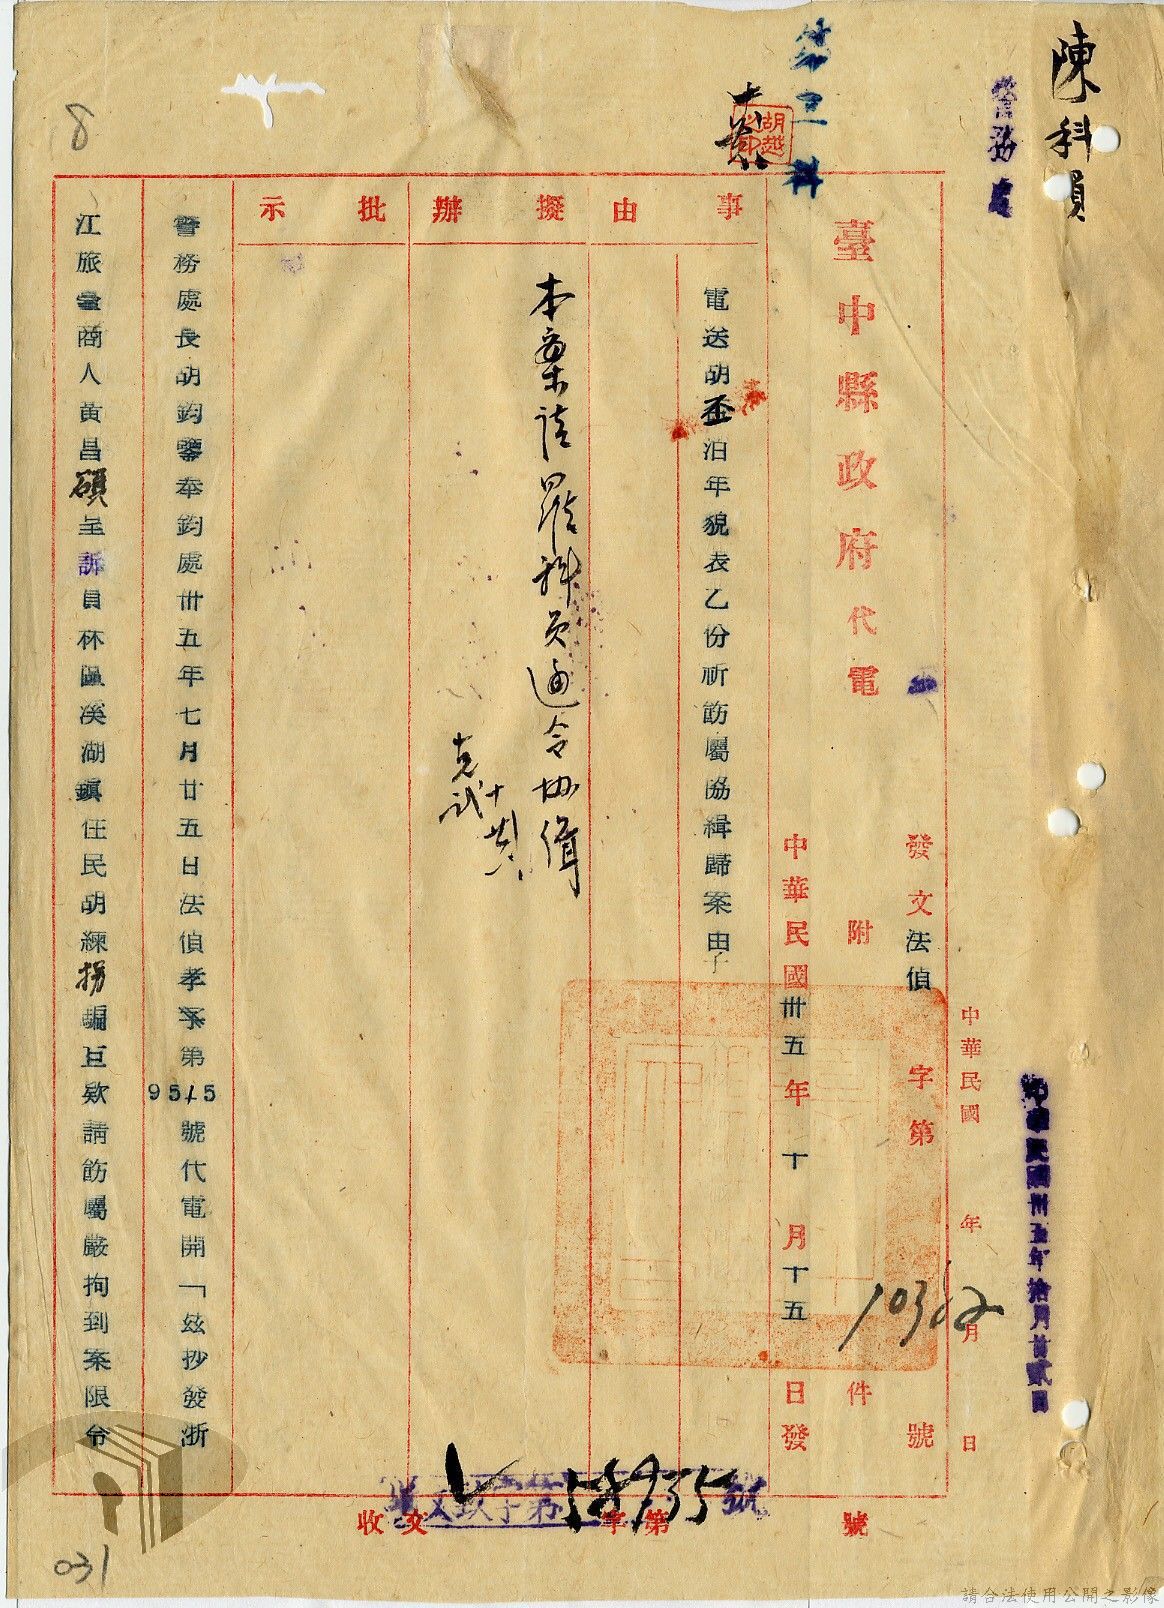 陳科員
警務處
中華民國卅五年拾月廿貳日
中華民國 年 月 日
第二科
胡越之印
發文法偵 字第 號
臺中縣政府代電
附 件
中華民國卅五年十月十五日發
事由
電送胡丕泊年貌表乙份祈飭屬協緝歸案由
擬辦
本案請羅科員通令協緝
批示
警務處長胡鈞鑒奉鈞處卅五年七月廿五日法偵孝字第9515號代電開「玆抄發浙
江旅臺商人黃昌碩呈訴員林區溪湖鎮任民胡練拐騙巨款請飭屬嚴拘到案限令
收文 字第58935號
8
031
請合法使用公開之影像